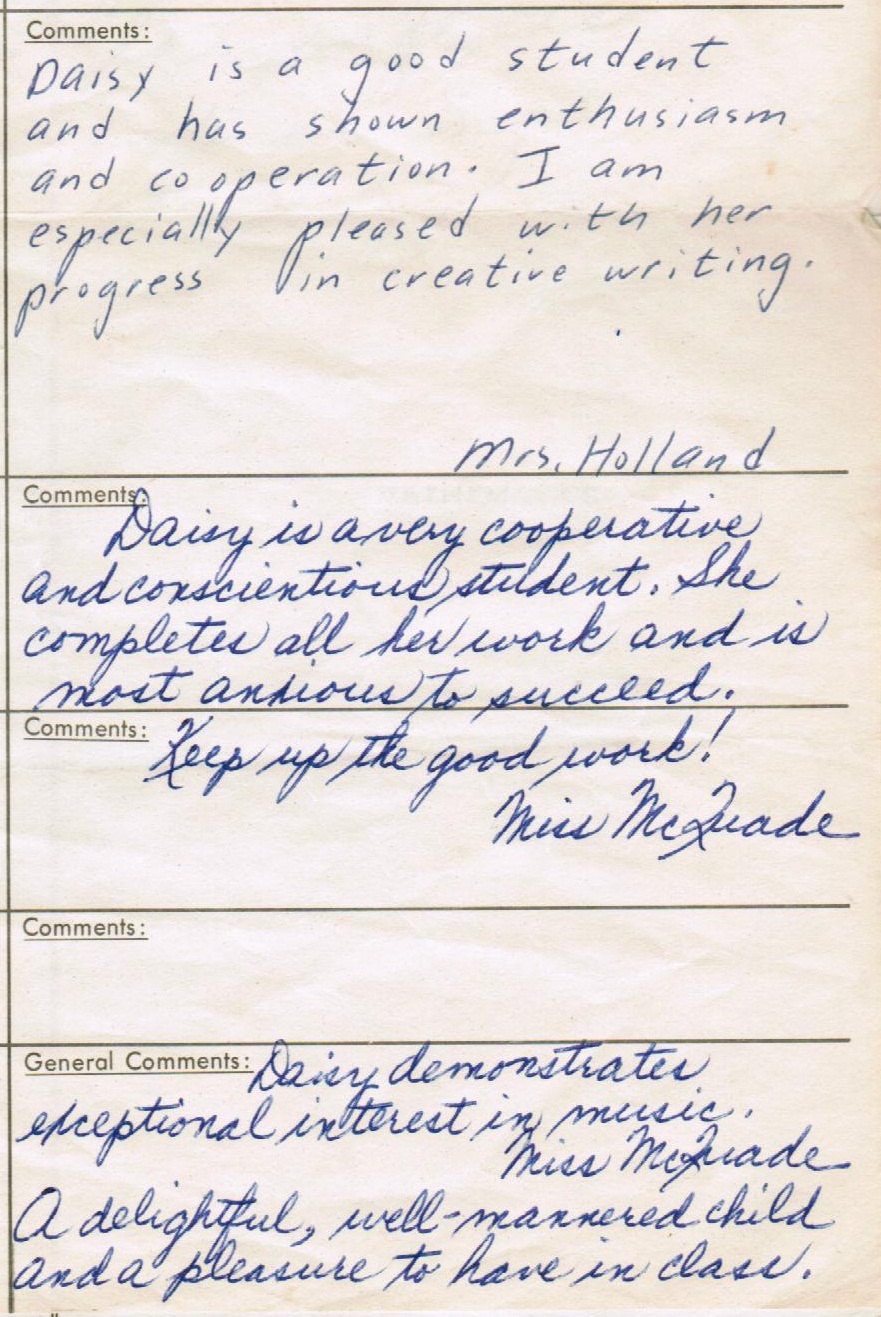 Comments:
Daisy is a good student
and has shown enthusiasm
and cooperation. I am
especially pleased with her
progress in creative writing.
Mrs. Holland
Comments:
Daisy is a very cooperative
and conscientious student. She
completes all her work and is
most anxious to succeed.
Comments:
Keep up the good work!
Miss McQuade
Comments:
General Comments: Daisy demonstrates
exceptional interest in music.
Miss McQuade
A delightful, well-mannered child
and a pleasure to have in class.